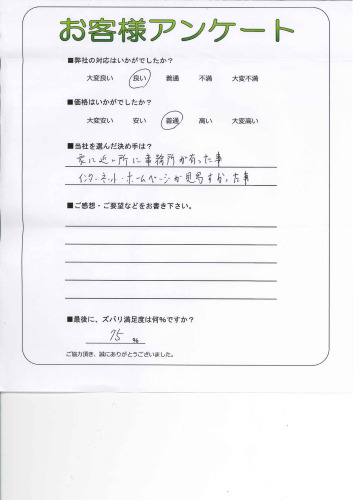 お客様アンケート
■弊社の対応はいかがでしたか?
大変良い 良い 普通 不満 大変不満
■価格はいかがでしたか?
大変安い 安い 普通 高い 大変高い
■当社を選んだ決め手は?
家に近い所に事務所が有った事
インターネット・ホームページが見易すかった事
■ご感想・ご要望などをお書き下さい。
■最後に、ズバリ満足度は何%ですか?
75 %
ご協力頂き、誠にありがとうございました。